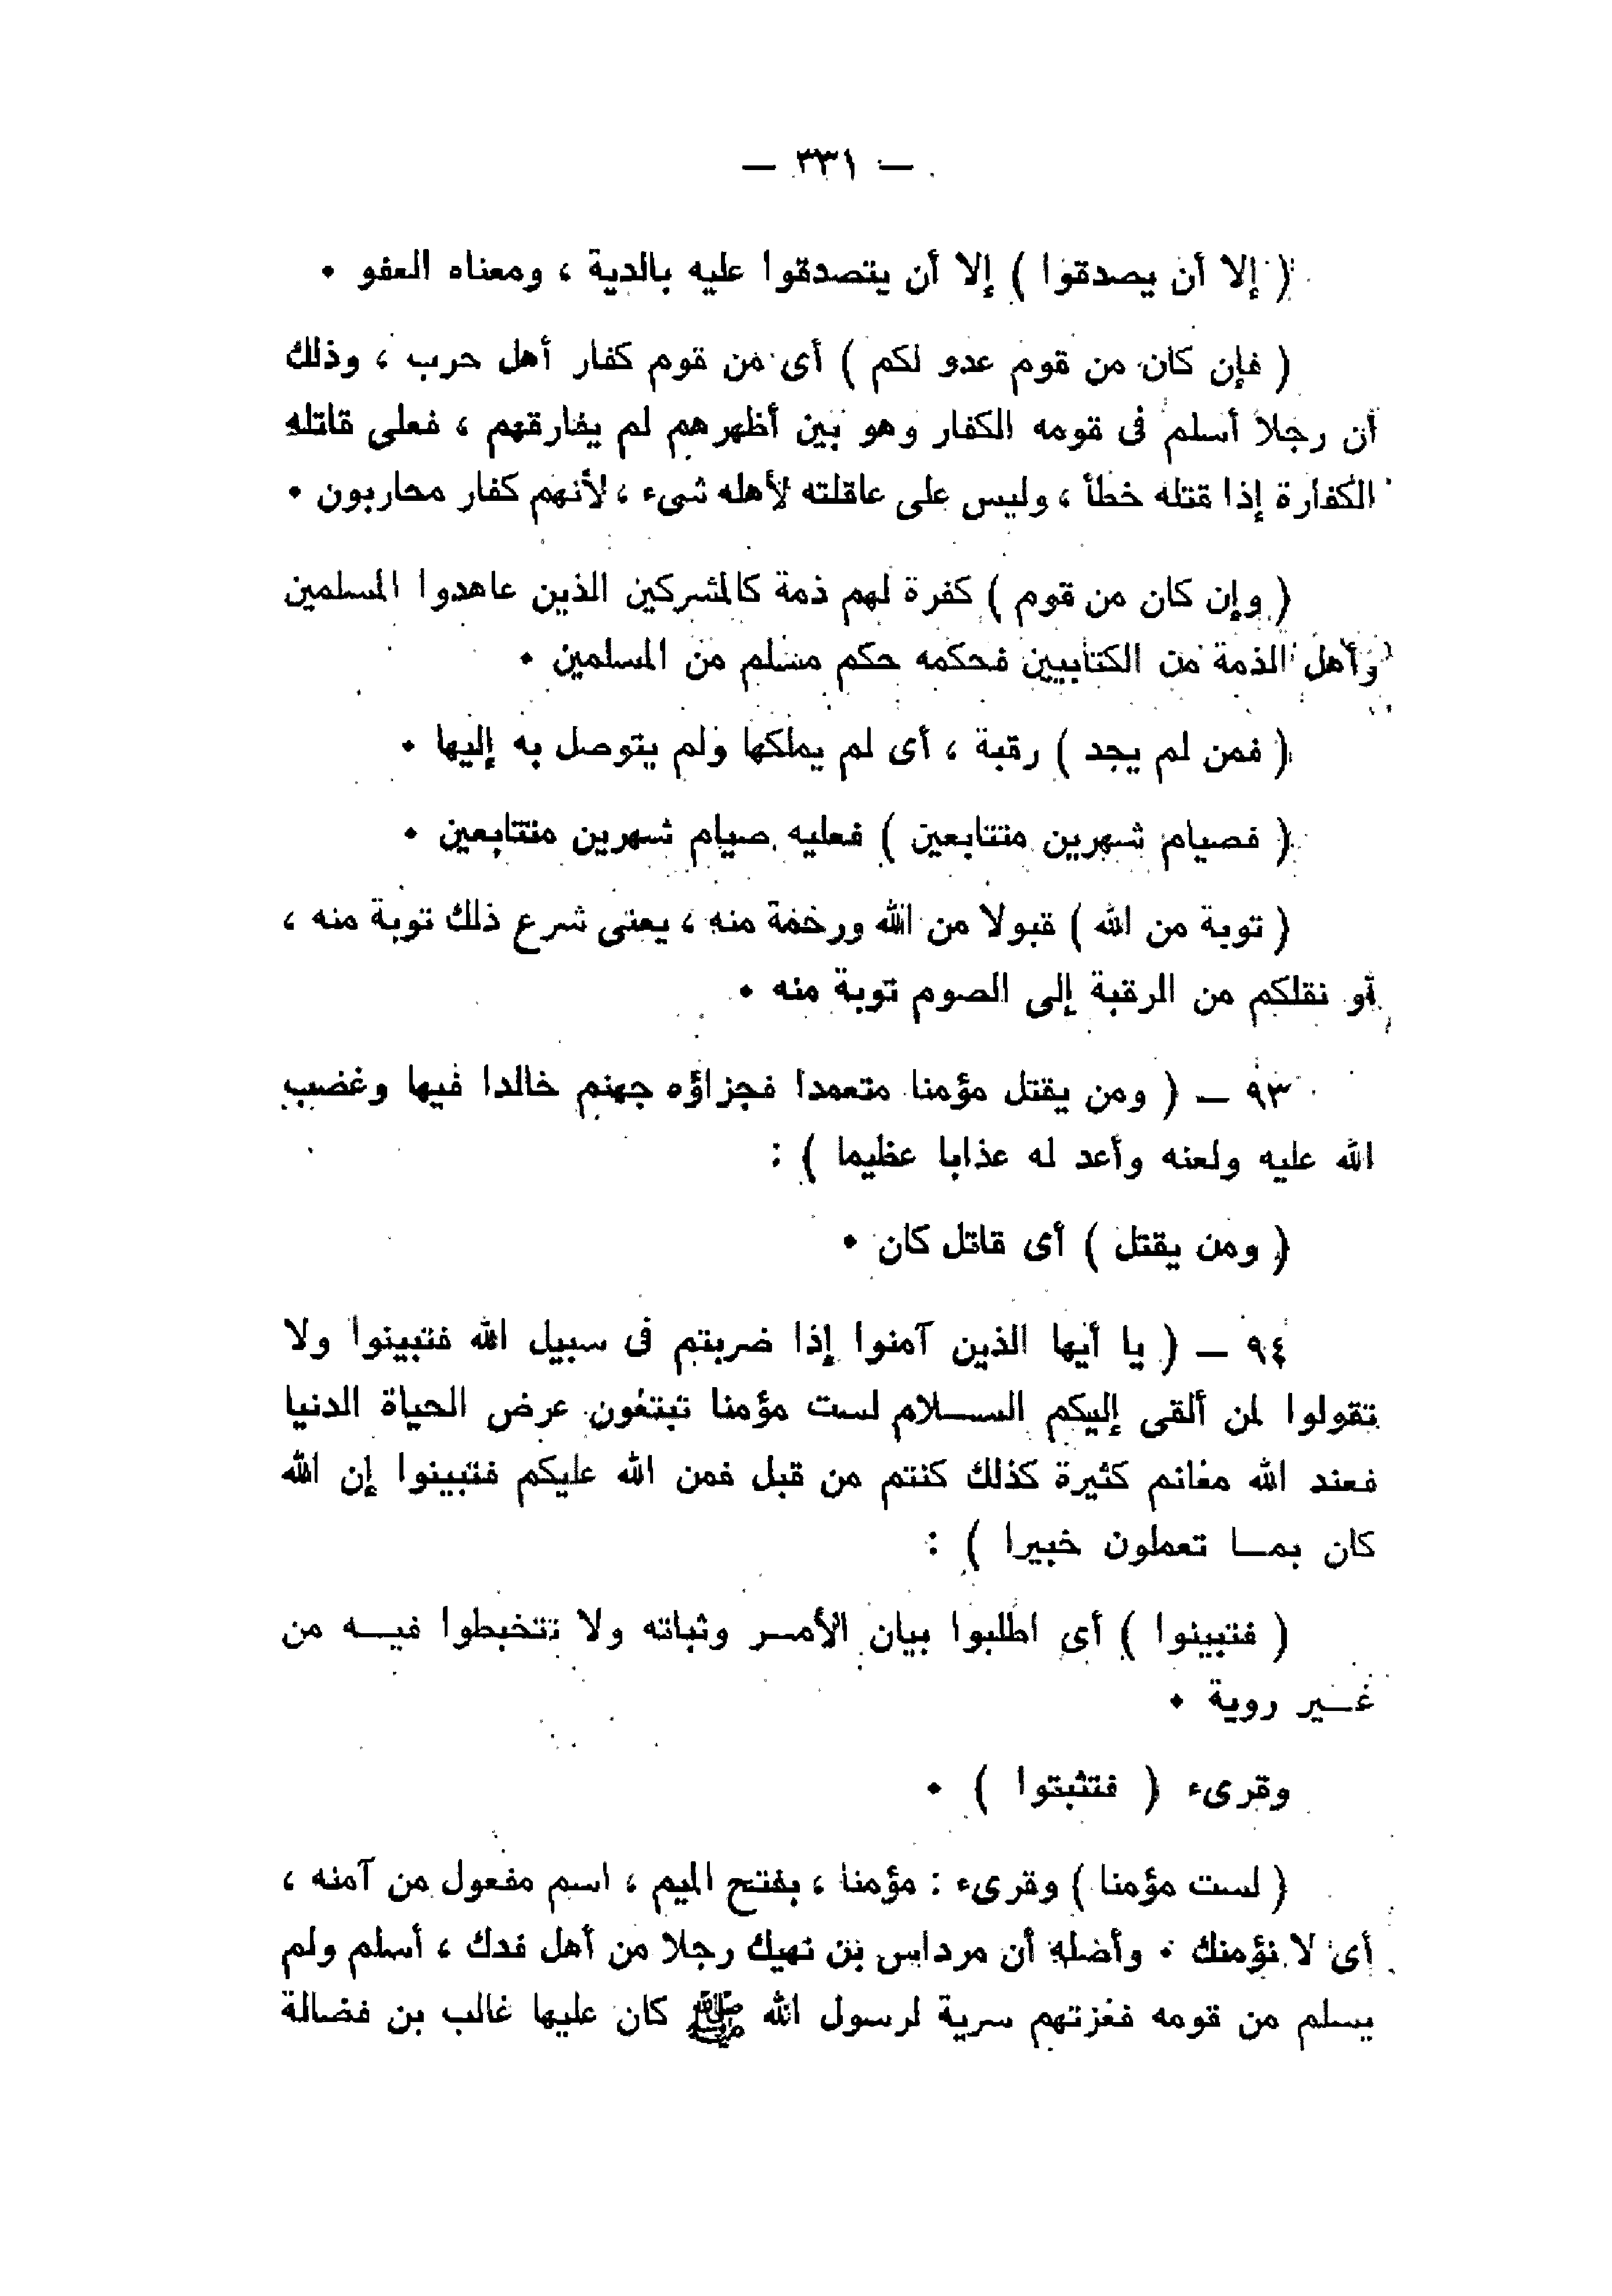 — ٣٣١ —
( إلا أن يصدقوا ) إلا أن يتصدقوا عليه بالدية ، ومعناه العفو .
( فإن كان من قوم عدو لكم ) أى من قوم كفار أهل حرب ، وذلك
أن رجلا أسلم فى قومه الكفار وهو بين أظهرهم لم يفارقهم ، فعلى قاتله
الكفارة إذا قتله خطأ ، وليس على عاقلته لأهله شىء ، لأنهم كفار محاربون .
( وإن كان من قوم ) كفرة لهم ذمة كالمشركين الذين عاهدوا المسلمين
وأهل الذمة من الكتابيين فحكمه حكم مسلم من المسلمين .
( فمن لم يجد ) رقبة ، أى لم يملكها ولم يتوصل به إليها .
( فصيام شهرين متتابعين ) فعليه صيام شهرين متتابعين .
( توبة من الله ) قبولا من الله ورحمة منه ، يعنى شرع ذلك توبة منه ،
أو نقلكم من الرقبة إلى الصوم توبة منه .
٩٣ — ( ومن يقتل مؤمنا متعمدا فجزاؤه جهنم خالدا فيها وغضب
الله عليه ولعنه وأعد له عذابا عظيما ) :
( ومن يقتل ) أى قاتل كان .
٩٤ — ( يا أيها الذين آمنوا إذا ضربتم فى سبيل الله فتبينوا ولا
تقولوا لمن ألقى إليكم السلام لست مؤمنا تبتغون عرض الحياة الدنيا
فعند الله مغانم كثيرة كذلك كنتم من قبل فمن الله عليكم فتبينوا إن الله
كان بما تعملون خبيرا ) :
( فتبينوا ) أى اطلبوا بيان الأمر وثباته ولا تتخبطوا فيه من
غير روية .
وقرىء ( فتثبتوا ) .
( لست مؤمنا ) وقرىء : مؤمنا ، بفتح الميم ، اسم مفعول من آمنه ،
أى لا نؤمنك . وأصله أن مرداس بن نهيك رجلا من أهل فدك ، أسلم ولم
يسلم من قومه فغزتهم سرية لرسول الله ﷺ كان عليها غالب بن فضالة